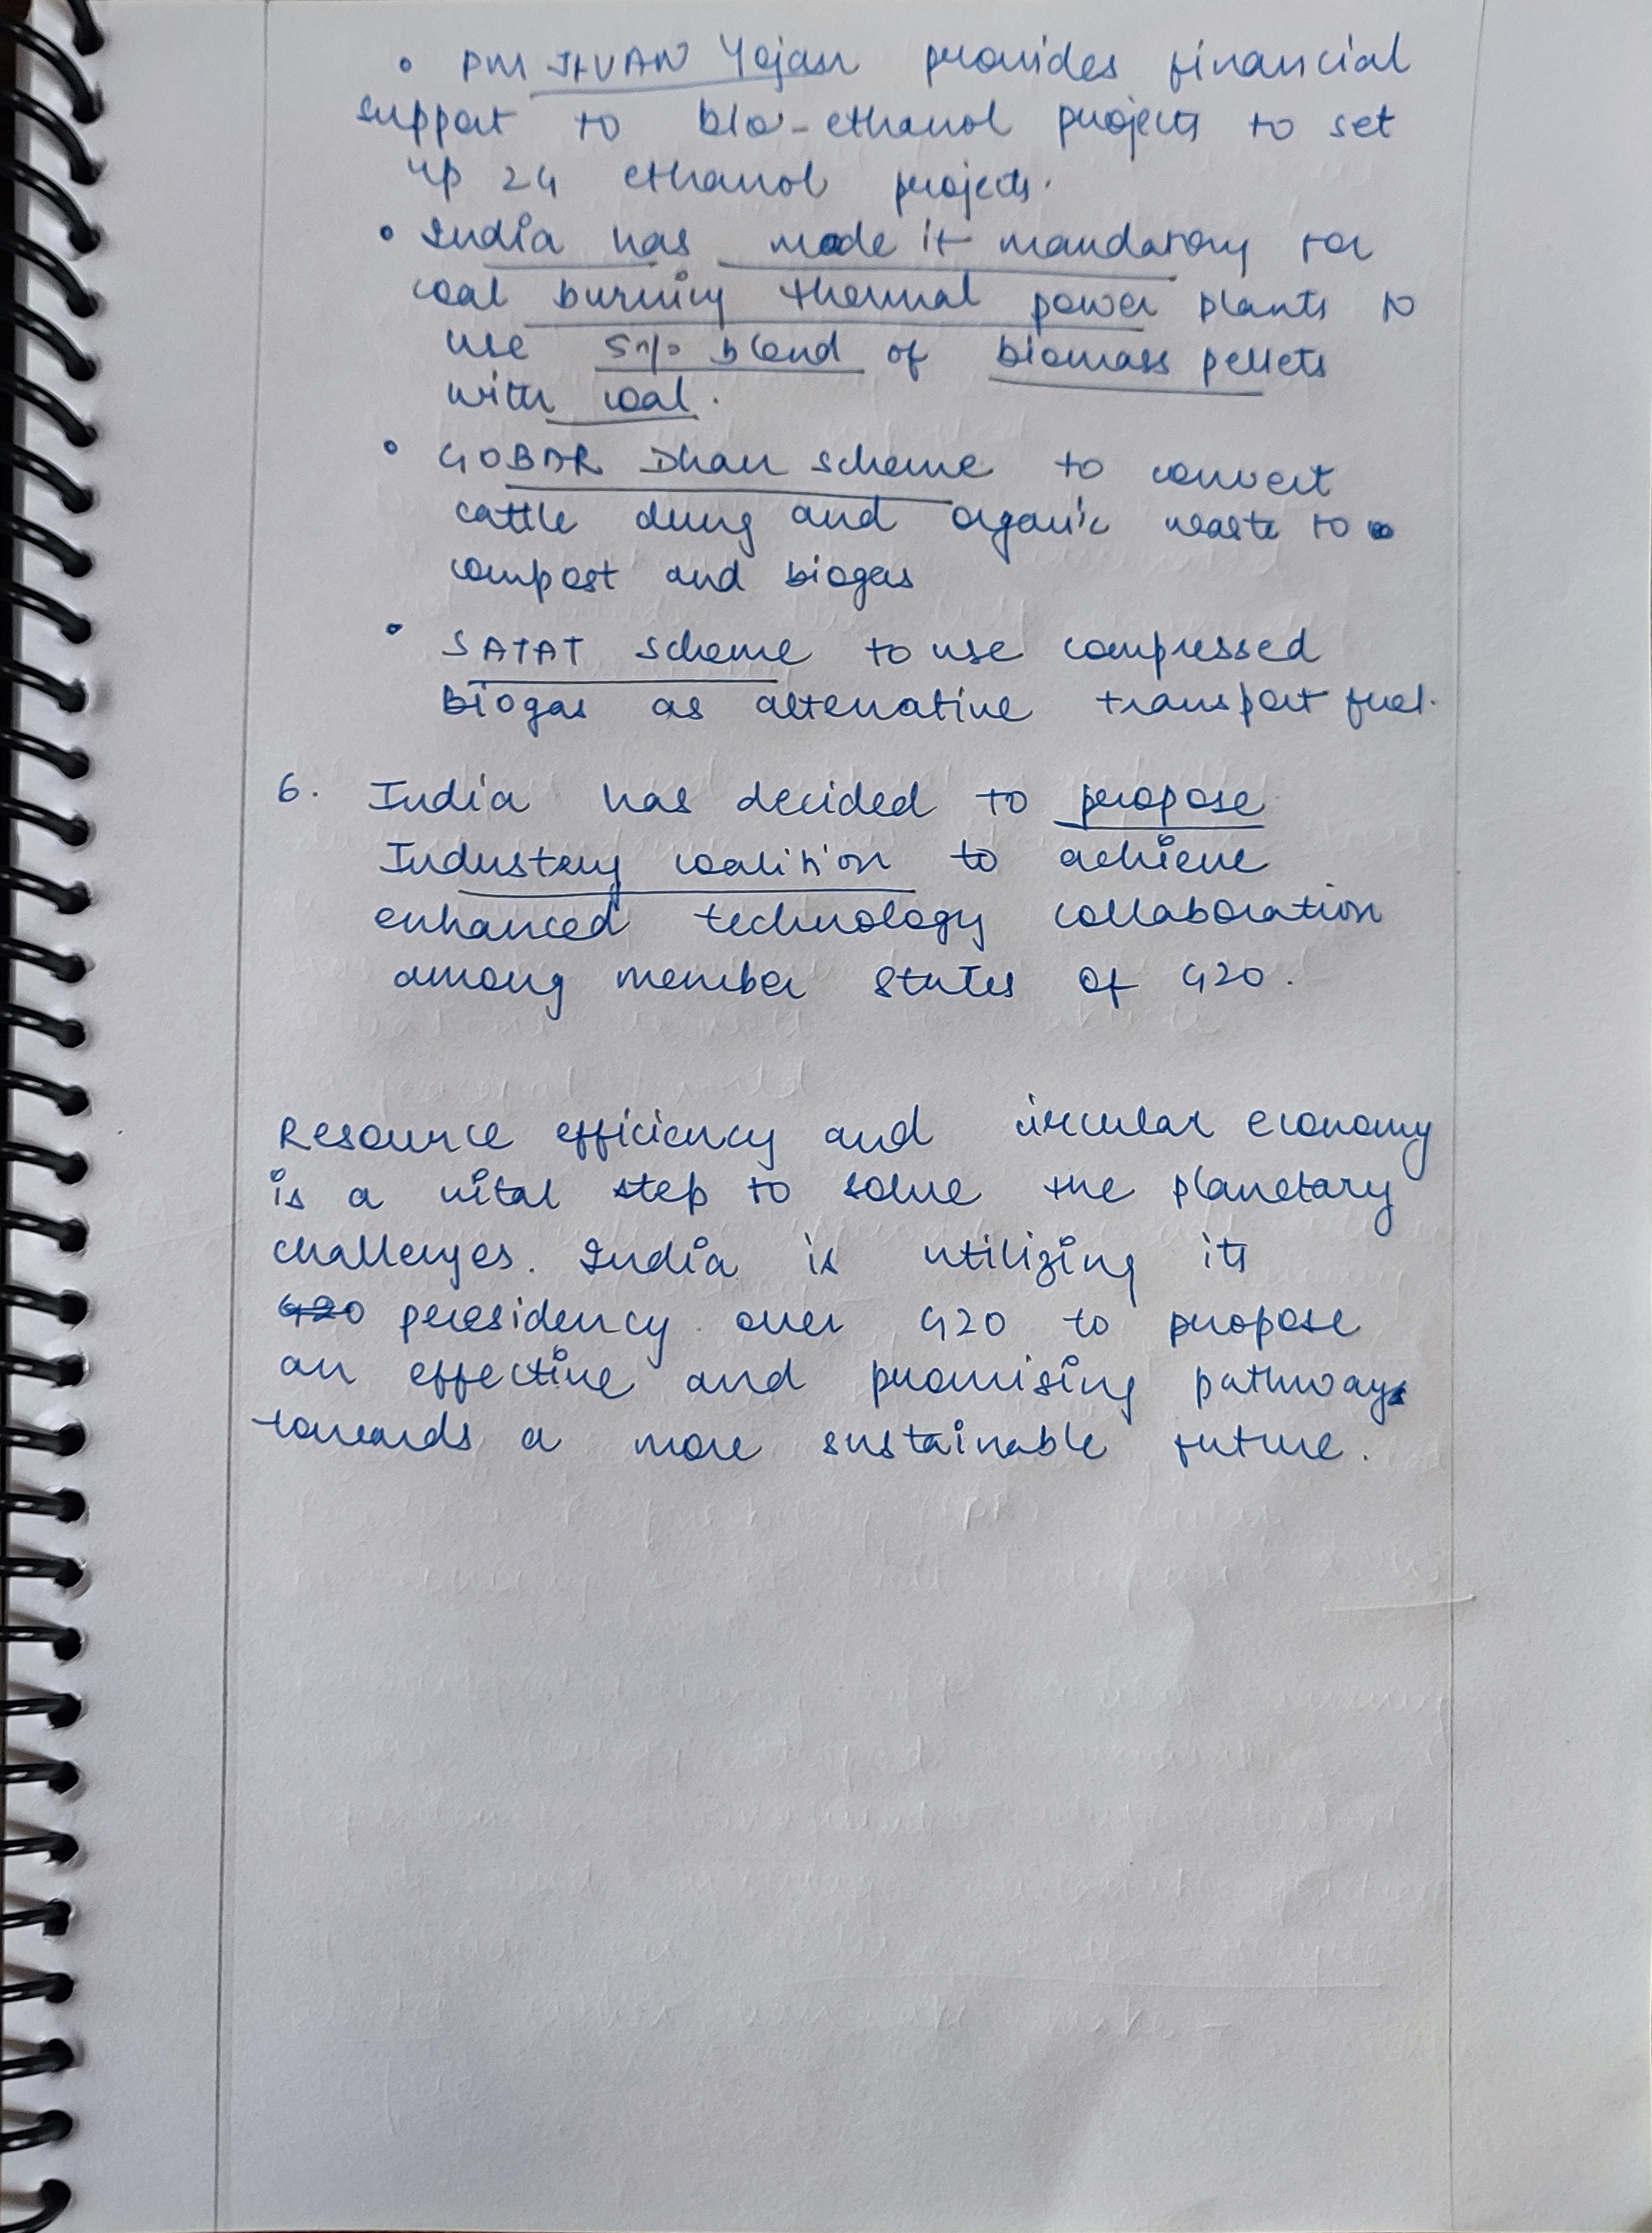 • PM JIVAN Yojan provides financial
support to bio-ethanol projects to set
up 24 ethanol projects.
• India has made it mandatory for
coal burning thermal power plants to
use 5% blend of biomass pellets
with coal.
• GOBAR Dhan scheme to convert
cattle dung and organic waste to
compost and biogas
• SATAT scheme to use compressed
Biogas as alternative transport fuel.
6. India has decided to propose
Industry coalition to achieve
enhanced technology collaboration
among member states of G20.
Resource efficiency and circular economy
is a vital step to solve the planetary
challenges. India is utilizing its
G20 presidency over G20 to propose
an effective and promising pathways
towards a more sustainable future.